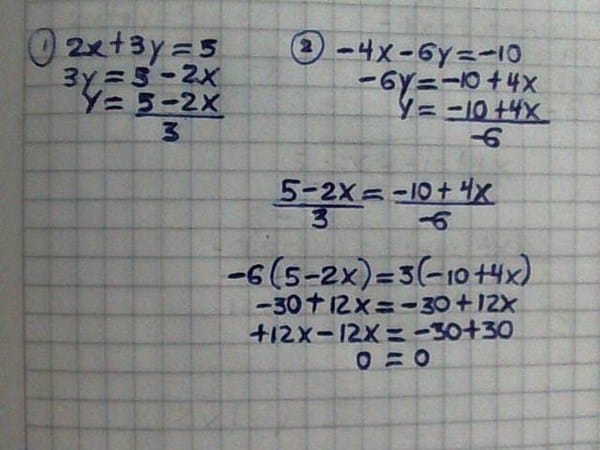 ① 2x+3y=5
3y=5-2x
y=5-2x
3
② -4x-6y=-10
-6y=-10+4x
y=-10+4x
-6
5-2x=-10+4x
3 -6
-6(5-2x)=3(-10+4x)
-30+12x=-30+12x
+12x-12x=-30+30
0=0